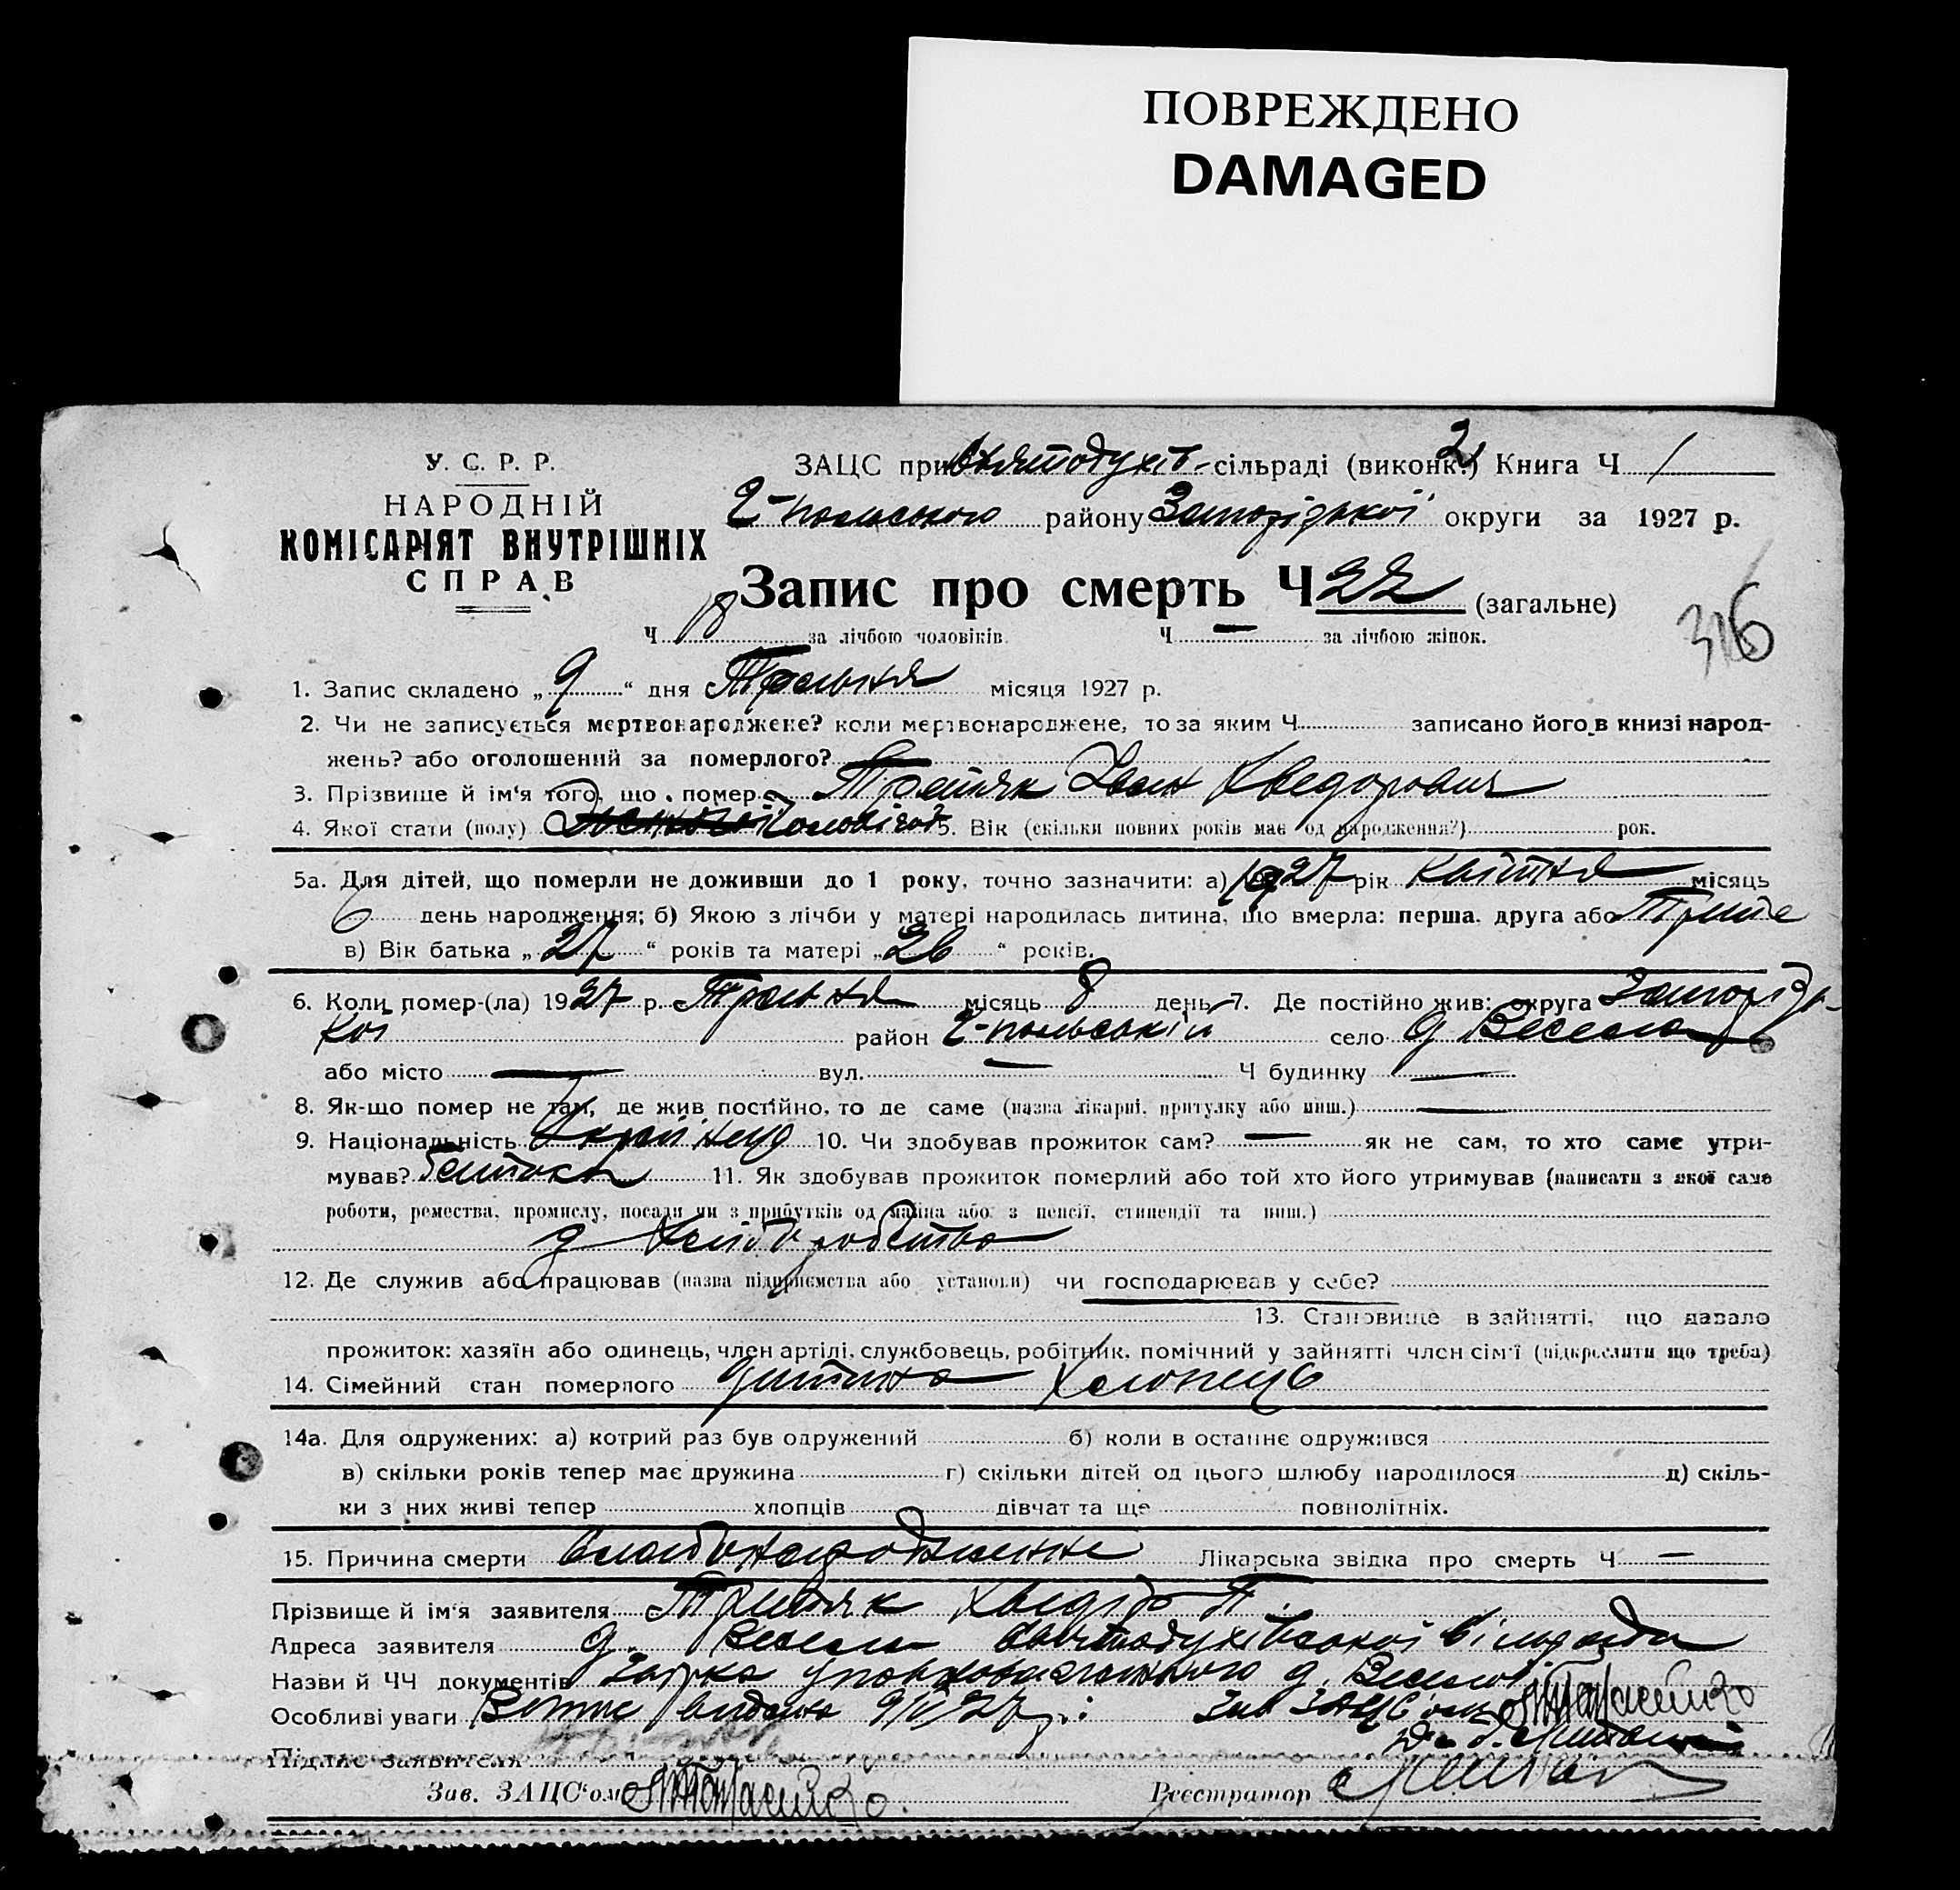 ПОВРЕЖДЕНО
DAMAGED
У. С. Р. Р.
НАРОДНІЙ
КОМІСАРІЯТ ВНУТРІШНІХ
СПРАВ
ЗАЦС при Святодухів- сільраді (виконк.) Книга Ч 1
2
2-польського району Запорізької округи за 1927 р.
Запис про смерть Ч 32 (загальне)
316
Ч 18 за лічбою чоловіків Ч — за лічбою жінок.
1. Запис складено „ 9 “ дня Травня місяця 1927 р.
2. Чи не записується мертвонароджене? коли мертвонароджене, то за яким Ч записано його в книзі народ-
жень? або оголошений за померлого?
3. Прізвище й ім'я того, що помер Третяк Іван Хведорович
4. Якої стати (полу) Чоловічої 5. Вік (скільки повних років має од народження?) рок.
5а. Для дітей, що померли не доживши до 1 року, точно зазначити: а) 1927 рік Квітня місяць
6 день народження; б) Якою з лічби у матері народилась дитина, що вмерла: перша, друга або Трите
в) Вік батька „ 27 “ років та матері „ 26 “ років.
6. Коли помер-(ла) 1927 р. Травня місяць 8 день 7. Де постійно жив: округа Запорізь-
кої район 2-польський село д. Весела
або місто — вул. — Ч будинку —
8. Як-що помер не там, де жив постійно, то де саме (назва лікарні, притулку або инш.) —
9. Національність Українець 10. Чи здобував прожиток сам? — як не сам, то хто саме утри-
мував? батьки 11. Як здобував прожиток померлий або той хто його утримував (написати з якої саме
роботи, ремества, промислу, посади чи з прибутків од майна або з пенсії, стипендії та инш.)
Хліборобство
12. Де служив або працював (назва підприємства або установи) чи господарював у себе?
13. Становище в зайнятті, що давало
прожиток: хазяїн або одинець, член артілі, службовець, робітник, помічний у зайнятті член сім'ї (підкреслити що треба)
14. Сімейний стан померлого дитина Хлопець
14а. Для одружених: а) котрий раз був одружений б) коли в останнє одружився
в) скільки років тепер має дружина г) скільки дітей од цього шлюбу народилося д) скіль-
ки з них живі тепер хлопців дівчат та ще повнолітніх.
15. Причина смерти Слабонародження Лікарська звідка про смерть Ч —
Прізвище й ім'я заявителя Третяк Хведір П.
Адреса заявителя д. Весела Святодухівської сільради
Назви й ЧЧ документів уповноваженого д. Веселої
Особливі уваги Витяг видано 9/V 27 р. Зав ЗАЦС'ом
Підпис заявителя
Зав. ЗАЦС'ом Реєстратор